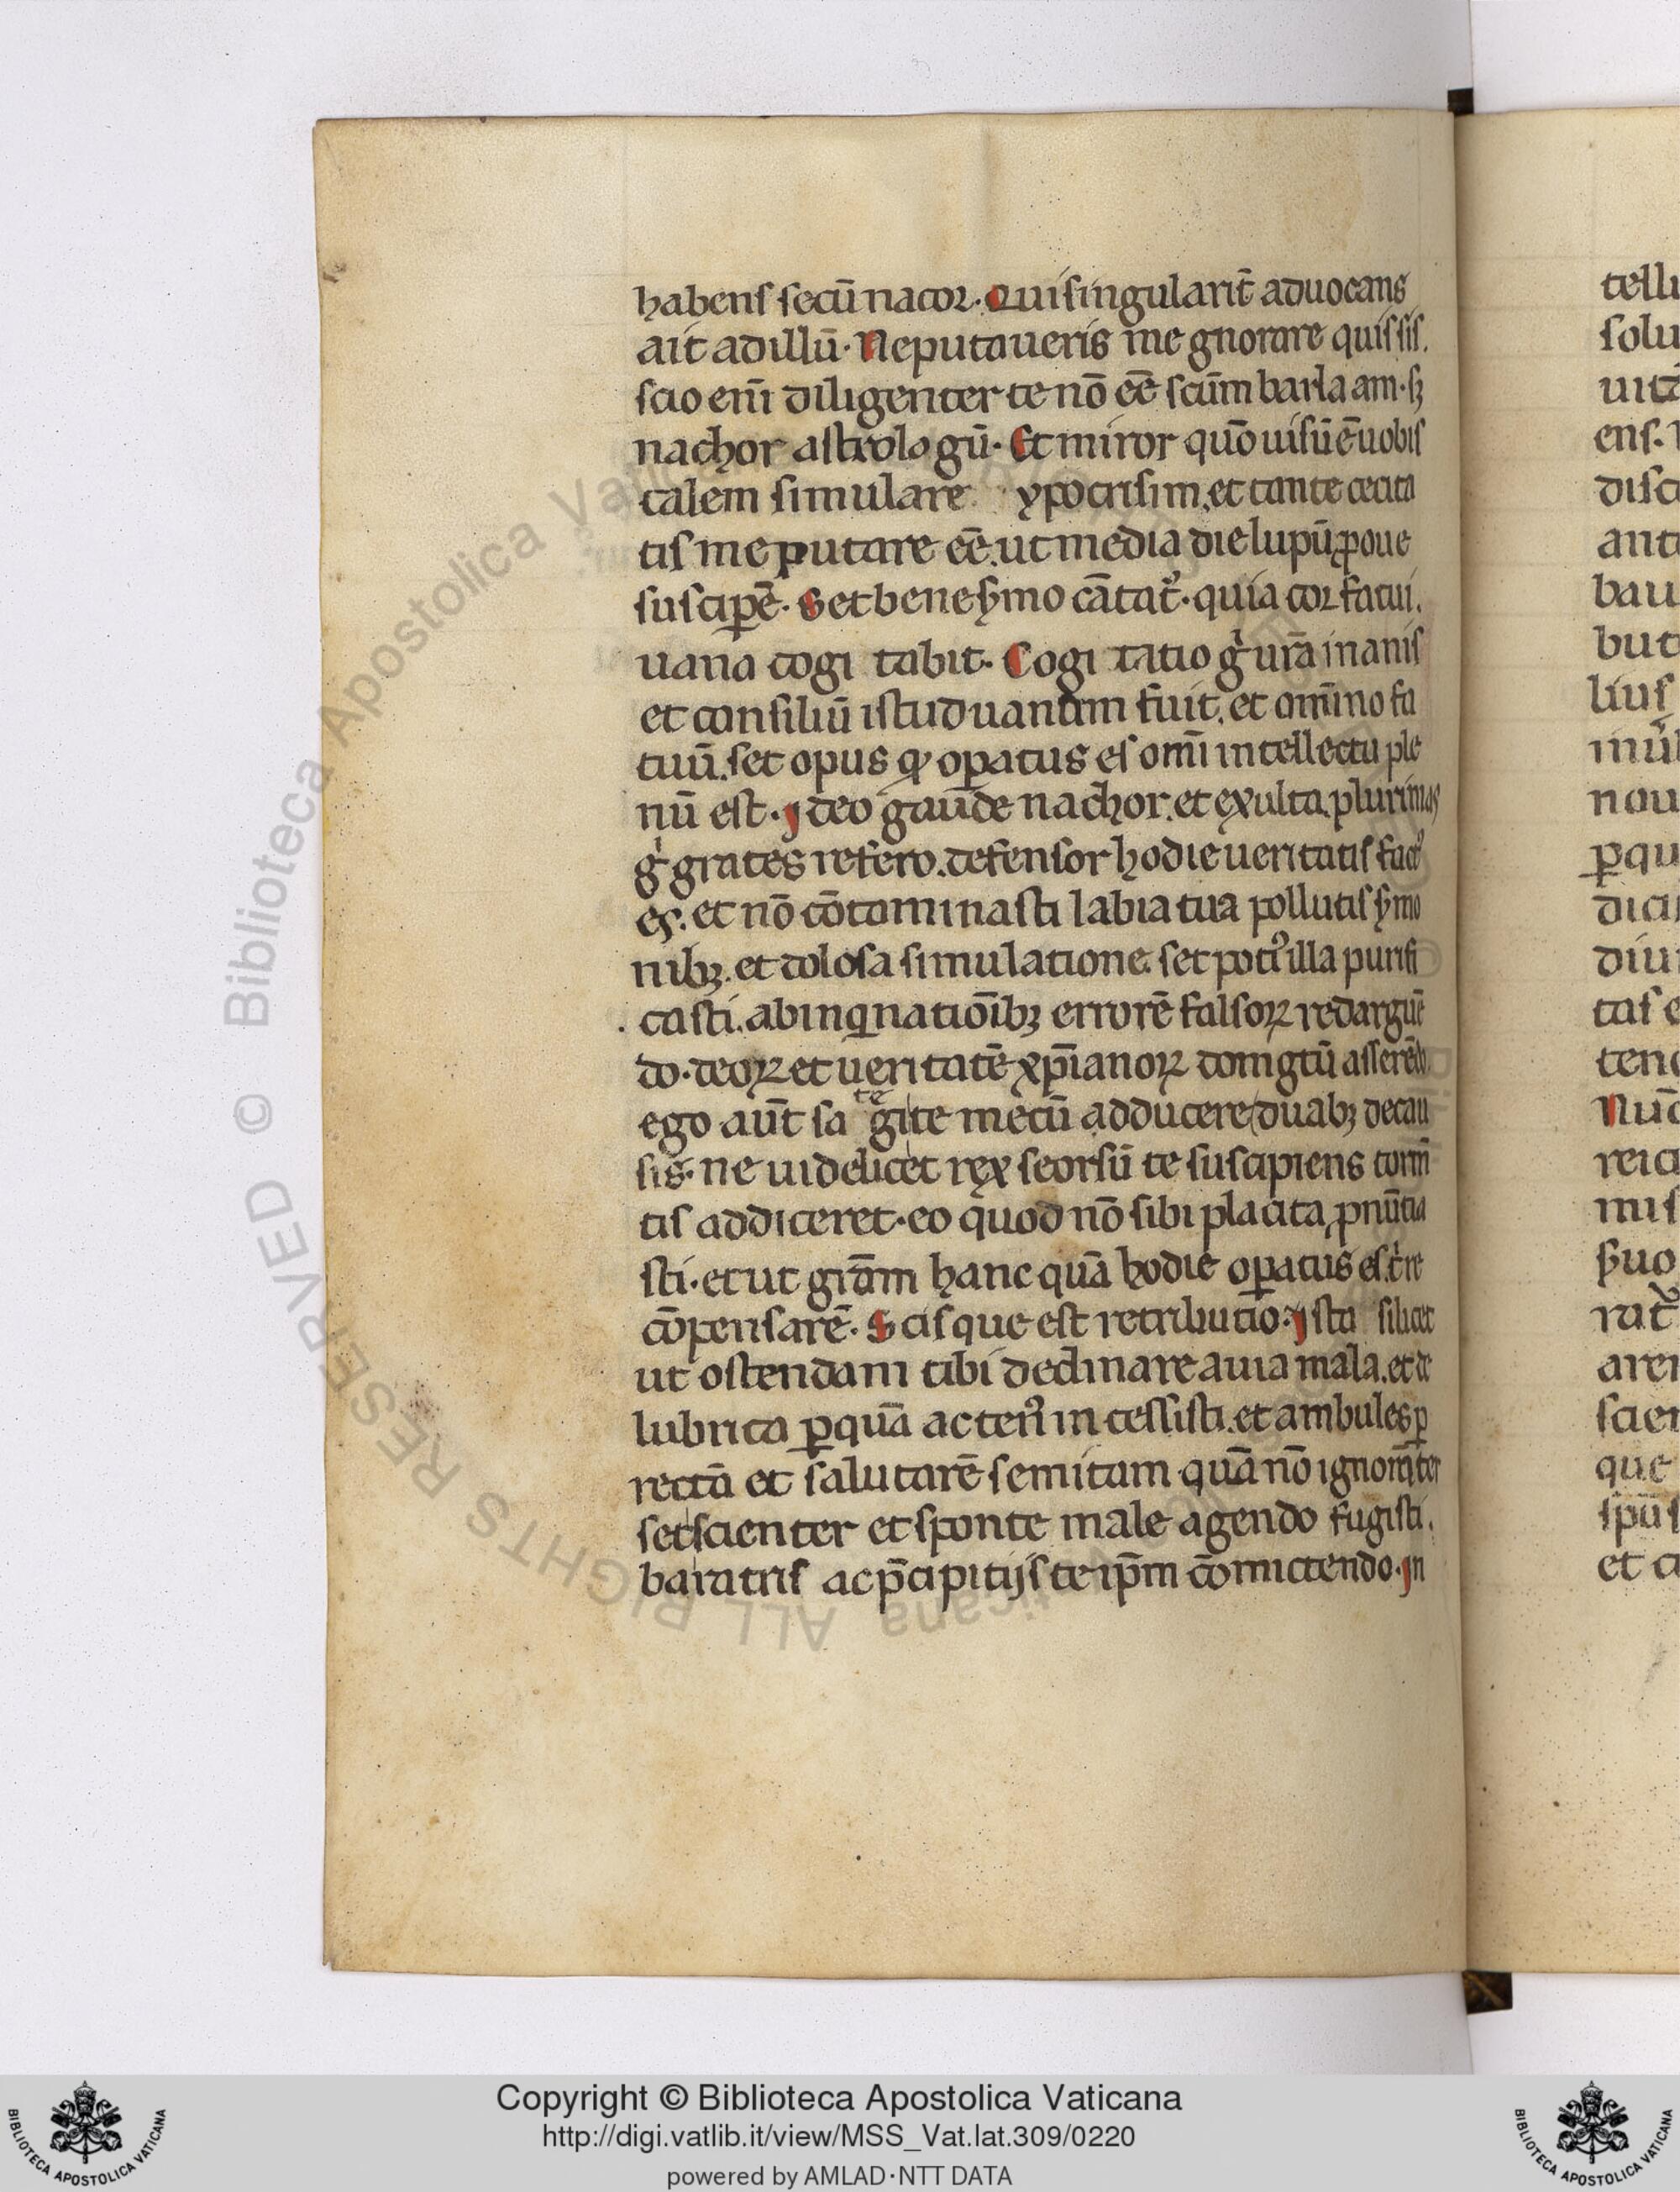 habens secū nacor. Qui singularit̄ aduocans
ait ad illū. Ne putaueris me gnorare quis sis.
scio enī diligenter te nō eē scūm barlaam. sꝫ
nachor astrologū. Et miror quō uisū ē uobis
talem simulare ypocrisim. et tante cecita
tis me putare eē. ut media die lupū ꝓ oue
suscipe̅. Set bene s̄mo cātatᷣ. quia cor fatui.
uana cogitabit. Cogitatio gͥ ura̅ inanis
et consiliū istud uanum fuit. et omīno fa
tuū. set opus qď oꝑatus es omī intellectu ple
nū est. Ideo gaude nachor. et exulta. plurimas
gͥ grates refero. defensor hodie ueritatis factꝰ
es. et nō cōtaminasti labia tua pollutis s̄mo
nibꝫ. et dolosa simulatione. set potiꝰ illa purifi
casti. ab inqinatiōibꝫ errorē falsoꝝ redargūe
do. deoꝝ et ueritatē xp̄ianoꝝ domgtū asserēdo.
ego aūt sa te gite mecū adducere duabꝫ de cau
sis. ne uidelicet rex seorsū te suscipiens torm̄
tis addiceret. eo quod nō sibi placita ꝓnūtia
sti. et ut gr̄am hanc quā hodie oꝑatus es tͥ re
cōpensarē. Scis que est retributio. Ista silicet
ut ostendam tibi declinare a uia mala. et de
lubrica ꝑ quā actenꝰ incessisti. et ambules ꝑ
rectā et salutarē semitam quā nō ignorāter
set scienter et sponte male agendo fugisti.
baratris ac p̄cipitijs te ip̄m cōmictendo. In
tellu
solu
uitā
ens.
disc
ante
bau
but
lius
nou
ꝑqu
dici
diui
tas e
tend
Nūc
reia
mis
aren
scien
que
et c
© Biblioteca Apostolica Vaticana ALL RIGHTS RESERVED
Copyright © Biblioteca Apostolica Vaticana
http://digi.vatlib.it/view/MSS_Vat.lat.309/0220
powered by AMLAD·NTT DATA
BIBLIOTECA APOSTOLICA VATICANA
BIBLIOTECA APOSTOLICA VATICANA